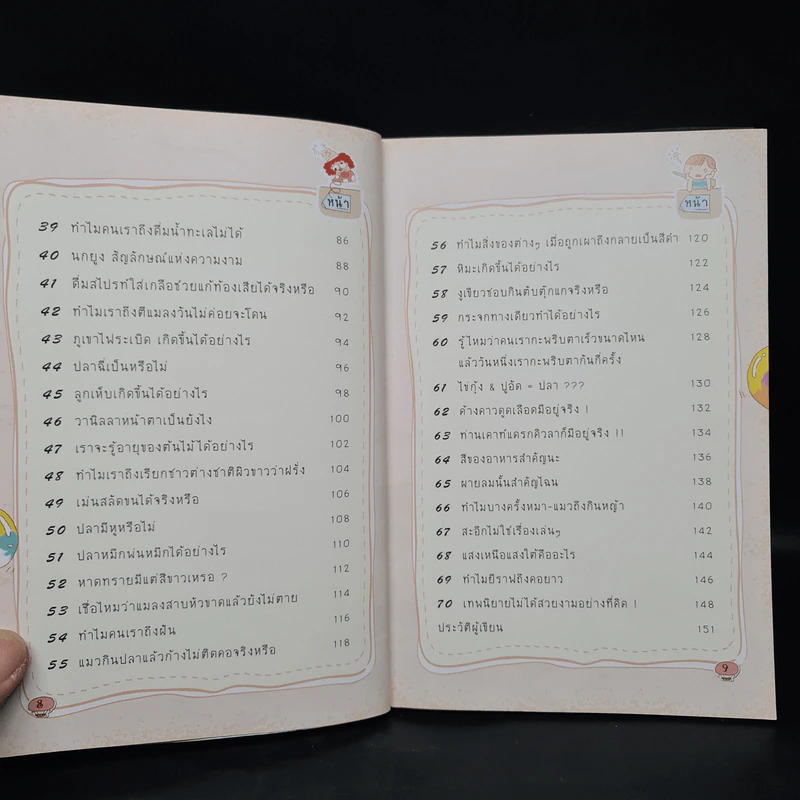 หน้า
39 ทำไมคนเราถึงดื่มน้ำทะเลไม่ได้ 86
40 นกยูง สัญลักษณ์แห่งความงาม 88
41 ดื่มสไปรท์ใส่เกลือช่วยแก้ท้องเสียได้จริงหรือ 90
42 ทำไมเราถึงตีแมลงวันไม่ค่อยจะโดน 92
43 ภูเขาไฟระเบิด เกิดขึ้นได้อย่างไร 94
44 ปลาฉี่เป็นหรือไม่ 96
45 ลูกเห็บเกิดขึ้นได้อย่างไร 98
46 วานิลลาหน้าตาเป็นยังไง 100
47 เราจะรู้อายุของต้นไม้ได้อย่างไร 102
48 ทำไมเราถึงเรียกชาวต่างชาติผิวขาวว่าฝรั่ง 104
49 เม่นสลัดขนได้จริงหรือ 106
50 ปลามีหูหรือไม่ 108
51 ปลาหมึกพ่นหมึกได้อย่างไร 110
52 หาดทรายมีแต่สีขาวเหรอ ? 112
53 เชื่อไหมว่าแมลงสาบหัวขาดแล้วยังไม่ตาย 114
54 ทำไมคนเราถึงฝัน 116
55 แมวกินปลาแล้วก้างไม่ติดคอจริงหรือ 118
8
หน้า
56 ทำไมสิ่งของต่างๆ เมื่อถูกเผาถึงกลายเป็นสีดำ 120
57 หิมะเกิดขึ้นได้อย่างไร 122
58 งูเขียวชอบกินตับตุ๊กแกจริงหรือ 124
59 กระจกทางเดียวทำได้อย่างไร 126
60 รู้ไหมว่าคนเรากะพริบตาเร็วขนาดไหน 128
แล้ววันหนึ่งเรากะพริบตากันกี่ครั้ง
61 ไข่กุ้ง & ปูอัด = ปลา ??? 130
62 ค้างคาวดูดเลือดมีอยู่จริง ! 132
63 ท่านเคาท์แดรกคิวลาก็มีอยู่จริง !! 134
64 สีของอาหารสำคัญนะ 136
65 ผายลมนั้นสำคัญไฉน 138
66 ทำไมบางครั้งหมา-แมวถึงกินหญ้า 140
67 สะอึกไม่ใช่เรื่องเล่นๆ 142
68 แสงเหนือแสงใต้คืออะไร 144
69 ทำไมยีราฟถึงคอยาว 146
70 เทพนิยายไม่ได้สวยงามอย่างที่คิด ! 148
ประวัติผู้เขียน 151
9